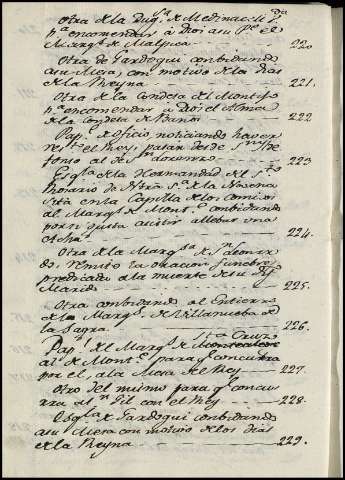 Otra de la Duqª. de Medinaceli Vda
pª encomendar à Dios a su Pe. el
Marqs. de Malpica 220.
Otra de Gardoqui conbidando
a su Mesa, con motivo de los dias
de la Reyna 221.
Otra de la Condesa del Montijo
pª encomendar à Dios el Alma
de la Condesa de Baños 222
Papl. de Oficio, noticiando haver
el Rey, pasar desde Sn. Ilde
fonso al de Sn. Lorenzo 223
Esqla. de la Hermandad del Sto.
Rosario de Ntra. Sª. de la Novena
sita en la Capilla de los Comicos
al Marqs. de Mont.e conbidando
por si gusta asistir a llebar una
Acha 224.
Otra de la Marqsa. de Sn. Leonar
do. remite la oracion funebre
predicada a la muerte de su
Marido 225.
Otra conbidando al Entierro
de la Marqsa. de Villanueba de
la Sagra 226.
Papl. del Marqs. de Sta. Cruz
al de Mont.e para qe. concurra
por el, a la Mesa del Rey 227.
Otro del mismo para qe. concu
rra al Gil con el Rey 228.
Esqla. de Gardoqui conbidando
a su Mesa con motivo de los dias
de la Reyna 229.